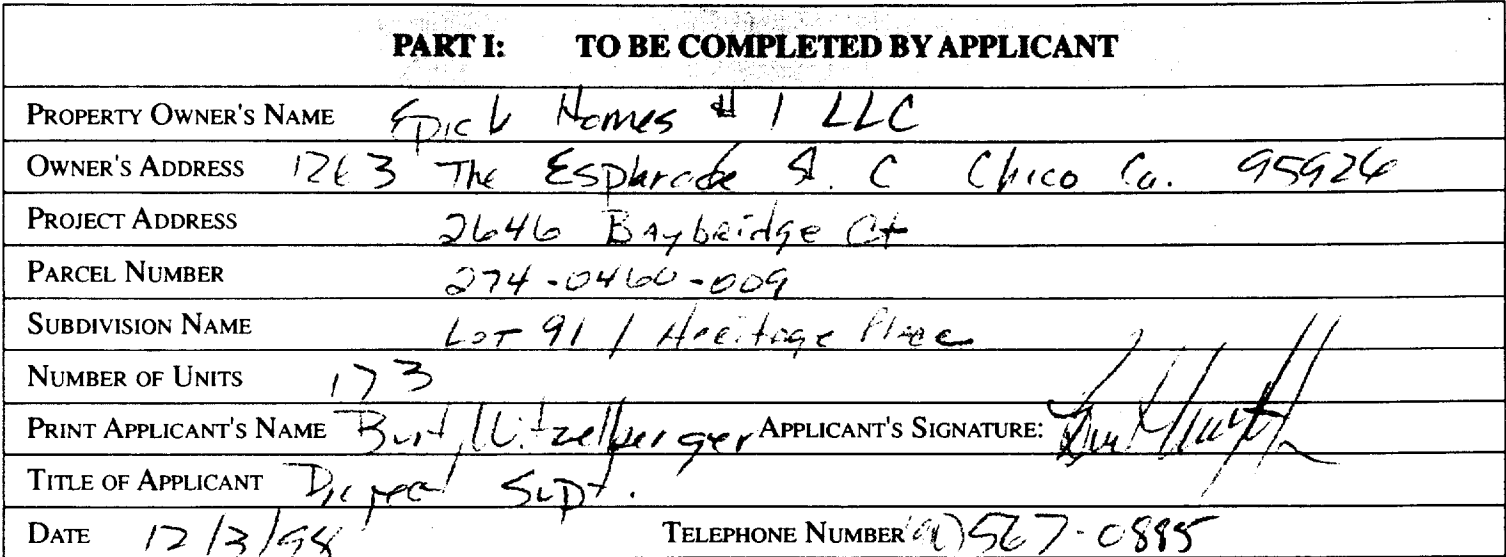 PART I: TO BE COMPLETED BY APPLICANT
PROPERTY OWNER'S NAME Epick Homes # 1 LLC
OWNER'S ADDRESS 1263 The Esplanade St. C Chico Ca. 95926
PROJECT ADDRESS 2646 Baybridge Ct
PARCEL NUMBER 274-0460-009
SUBDIVISION NAME Lot 91 / Heritage Place
NUMBER OF UNITS 173
PRINT APPLICANT'S NAME Burt Witzelberger APPLICANT'S SIGNATURE:
TITLE OF APPLICANT Supt.
DATE 12/3/98 TELEPHONE NUMBER 567-0885